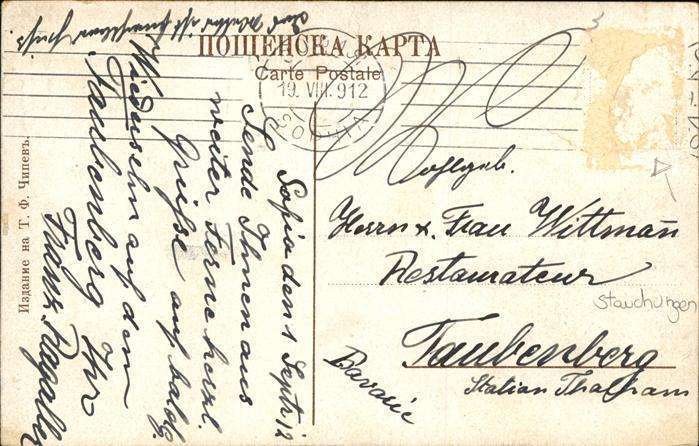 ПОЩЕНСКА КАРТА
Carte Postale
19. VIII. 912
СОФИЯ
Издание на Т. Ф. Чипевъ.
Sofia den 1 Septr 12
Sende Ihnen aus
weiter Ferne herzl.
Grüsse auf bald.
Wiedersehn auf dem
Taubenberg Ihr
Franz
Wohlgeb.
Herrn u. Frau Wittmann
Restaurateur
Taubenberg
Station Thalham
Bavarie
Stauchungen